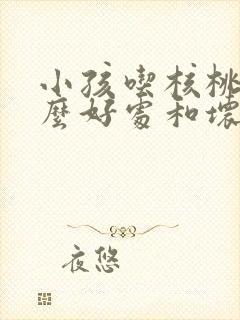 小孩喫核桃
麼好處和壞
夜悠